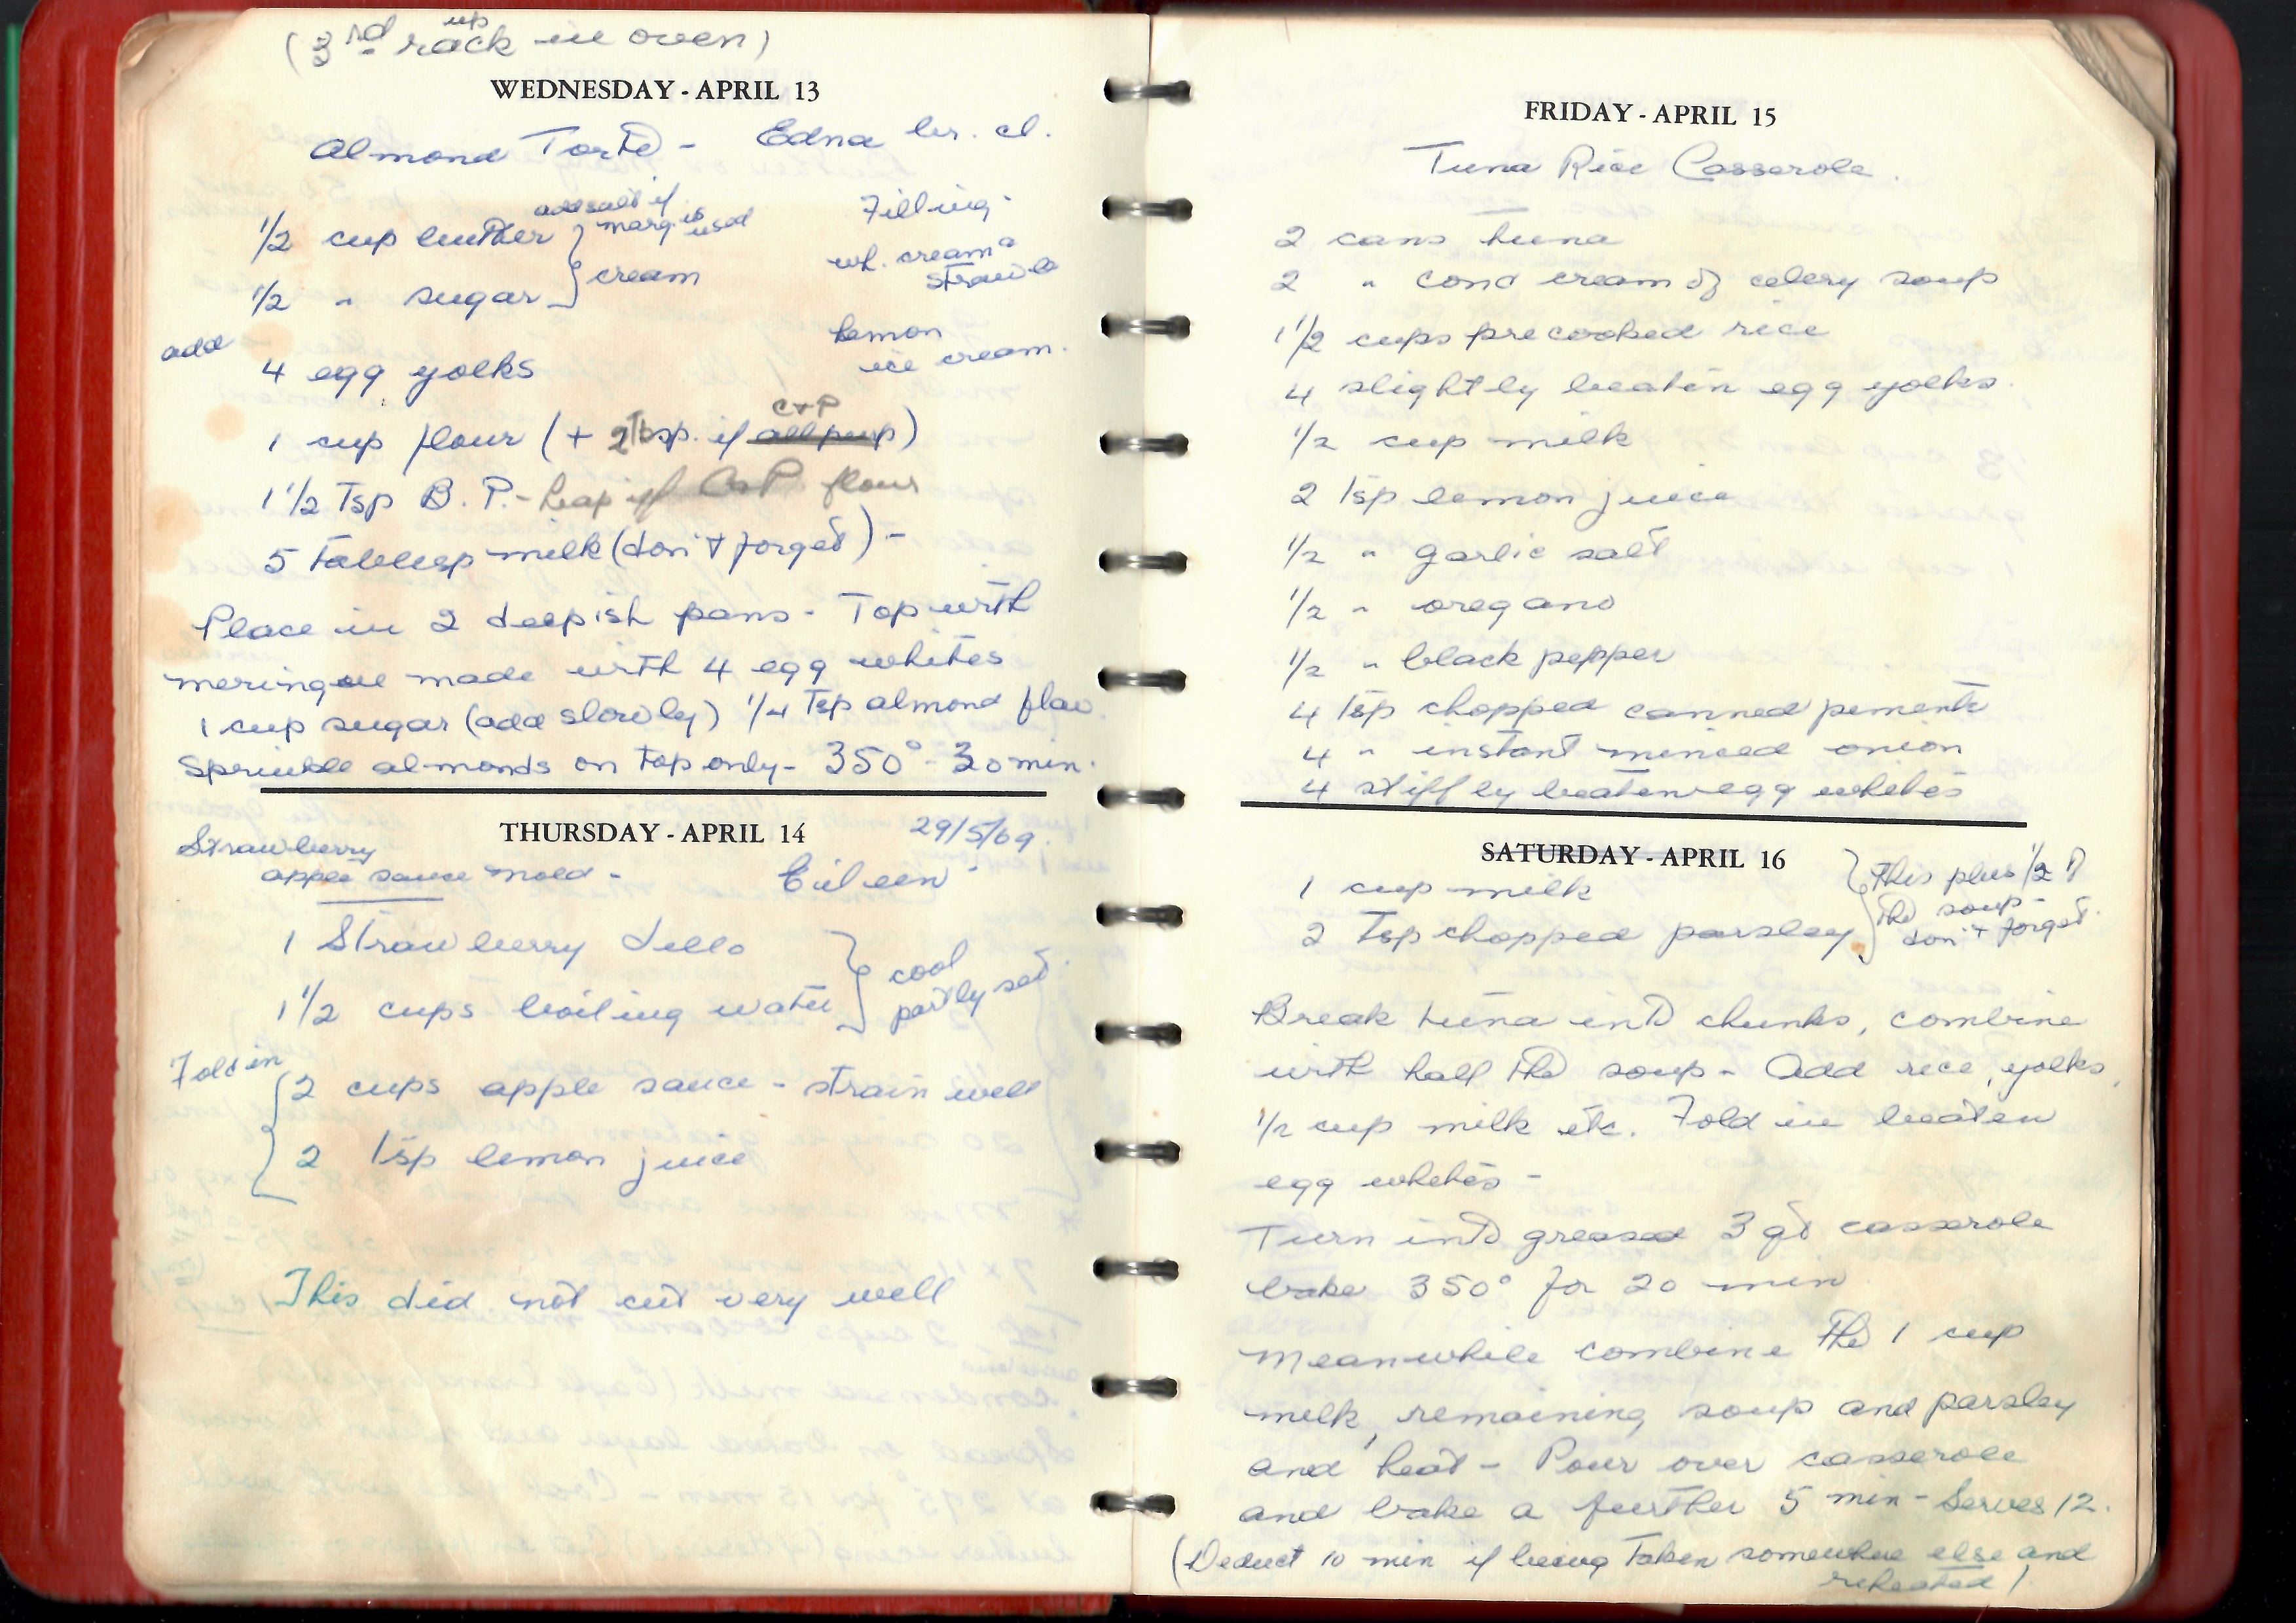 (3rd rack up in oven)
WEDNESDAY - APRIL 13
Almond Torte - Edna
add salt if
marg. is used
1/2 cup butter } cream
1/2 " sugar
Filling -
wh. cream
lemon
ice cream.
add
4 egg yolks
C & P
1 cup flour (+ 2 Tbsp. if all purp)
1 1/2 Tsp B. P. - heap if C & P flour
5 Tablesp milk (don't forget) -
Place in 2 deepish pans - Top with
meringue made with 4 egg whites
1 cup sugar (add slowly) 1/4 Tsp almond flav.
Sprinkle almonds on top only - 350° - 30 min.
THURSDAY - APRIL 14 29/5/69.
Strawberry
apple sauce mold - Eileen -
1 Strawberry Jello } cool
1 1/2 cups boiling water } partly set
Fold in
2 cups apple sauce - strain well
2 Tsp lemon juice
This did not cut very well
FRIDAY - APRIL 15
Tuna Rice Casserole.
2 cans tuna
2 " cond cream of celery soup
1 1/2 cups precooked rice
4 slightly beaten egg yolks.
1/2 cup milk
2 Tsp lemon juice
1/2 " garlic salt
1/2 " oregano
1/2 " black pepper
4 Tsp chopped canned pimento
4 " instant minced onion
4 stiffly beaten egg whites
SATURDAY - APRIL 16
1 cup milk
2 Tsp chopped parsley
} This plus 1/2 of
the soup -
don't forget.
Break tuna into chunks, combine
with half the soup - Add rice, yolks,
1/2 cup milk etc. Fold in beaten
egg whites -
Turn into greased 3 qt casserole
bake 350° for 20 min
Meanwhile combine the 1 cup
milk, remaining soup and parsley
and heat - Pour over casserole
and bake a further 5 min - Serves 12.
(Deduct 10 min if being taken somewhere else and
reheated)